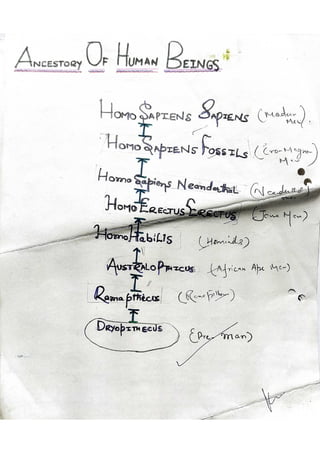 ANCESTORY OF HUMAN BEINGS
HOMO SAPIENS SAPIENS (Modern Men)
HOMO SAPIENS FOSSILS (Cro-Magnon M.)
Homo Sapiens Neandertal
HOMO ERECTUS ERECTUS (Java Men)
HOMO HABILIS (Hominids)
AUSTRALOPTHICUS (African Ape Men)
Ramapithecus
DRYOPITHECUS (Pre-Man)